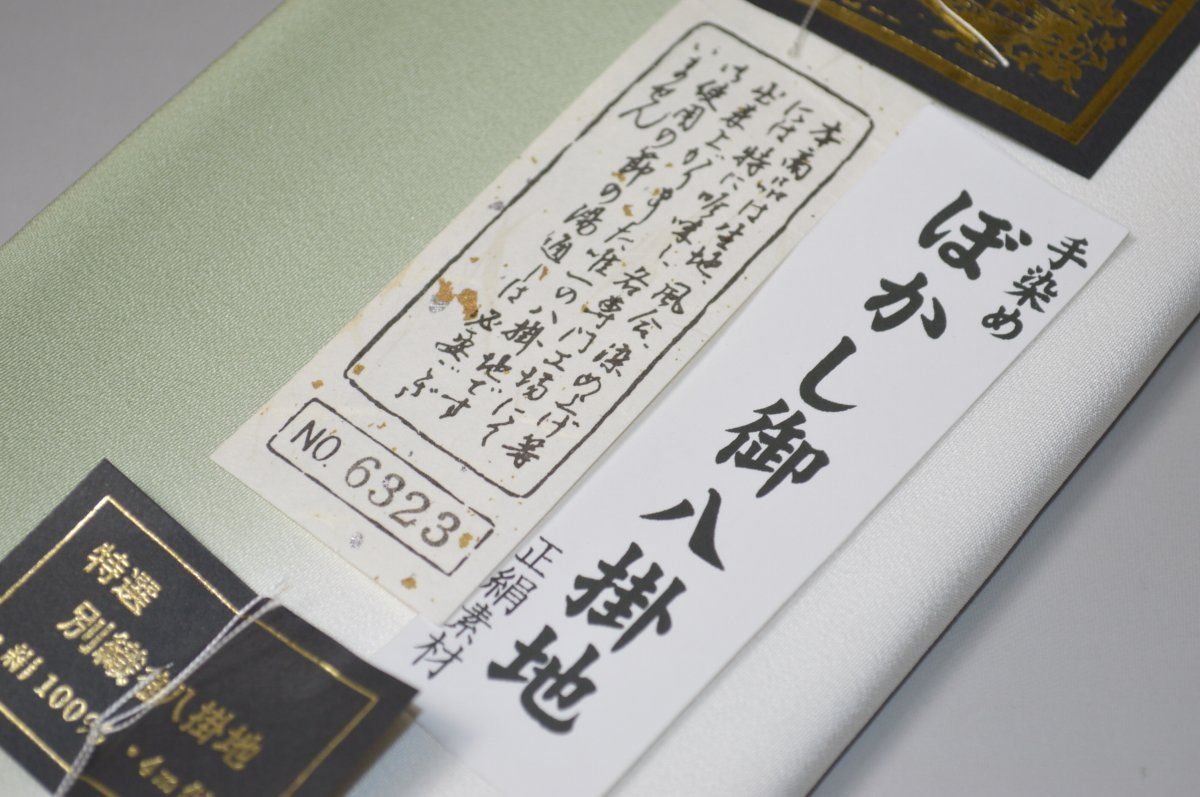 手染め
ぼかし御八掛地
正絹素材
本商品は生地、風合、染め上げ等
には特に吟味し、各専門工場にて
出来上がりました唯一の八掛地です
御使用の節の湯通しは必要ござ
いません
NO. 6323
特選
別織御八掛地
絹100%・4m